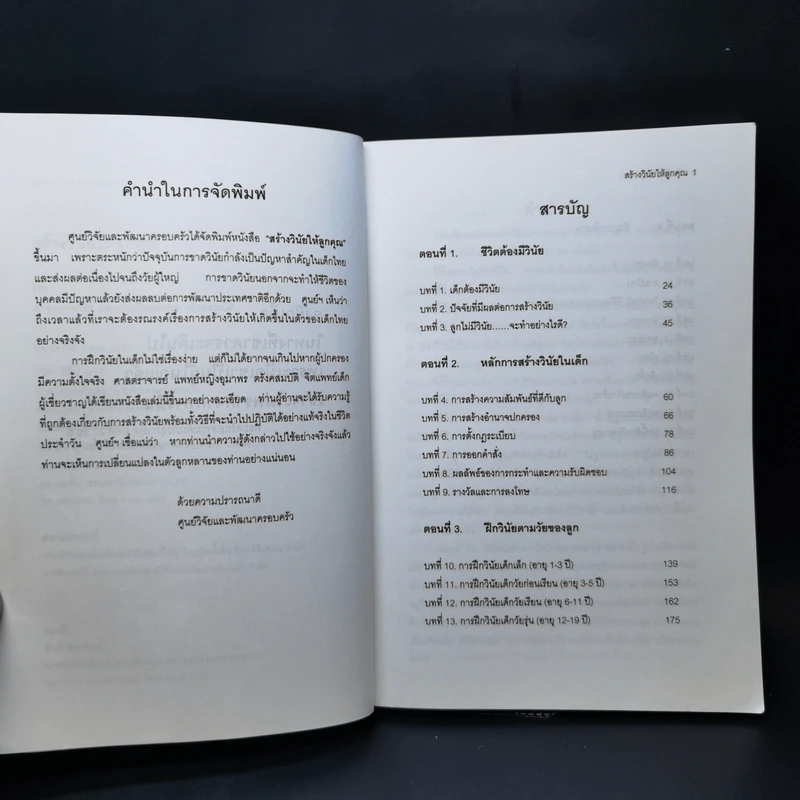 คำนำในการจัดพิมพ์
ศูนย์วิจัยและพัฒนาครอบครัวได้จัดพิมพ์หนังสือ "สร้างวินัยให้ลูกคุณ"
ขึ้นมา เพราะตระหนักว่าปัจจุบันการขาดวินัยกำลังเป็นปัญหาสำคัญในเด็กไทย
และส่งผลต่อเนื่องไปจนถึงวัยผู้ใหญ่ การขาดวินัยนอกจากจะทำให้ชีวิตของ
บุคคลมีปัญหาแล้วยังส่งผลลบต่อการพัฒนาประเทศชาติอีกด้วย ศูนย์ฯ เห็นว่า
ถึงเวลาแล้วที่เราจะต้องรณรงค์เรื่องการสร้างวินัยให้เกิดขึ้นในตัวของเด็กไทย
อย่างจริงจัง
การฝึกวินัยในเด็กไม่ใช่เรื่องง่าย แต่ก็ไม่ได้ยากจนเกินไปหากผู้ปกครอง
มีความตั้งใจจริง ศาสตราจารย์ แพทย์หญิงอุมาพร ตรังคสมบัติ จิตแพทย์เด็ก
ผู้เชี่ยวชาญได้เขียนหนังสือเล่มนี้ขึ้นมาอย่างละเอียด ท่านผู้อ่านจะได้ความรู้
ที่ถูกต้องเกี่ยวกับการสร้างวินัยพร้อมทั้งวิธีที่จะนำไปปฏิบัติได้อย่างแท้จริงในชีวิต
ประจำวัน ศูนย์ฯ เชื่อแน่ว่า หากท่านนำความรู้ดังกล่าวไปใช้อย่างจริงจังแล้ว
ท่านจะเห็นการเปลี่ยนแปลงในตัวลูกหลานของท่านอย่างแน่นอน
ด้วยความปรารถนาดี
ศูนย์วิจัยและพัฒนาครอบครัว
สร้างวินัยให้ลูกคุณ 1
สารบัญ
ตอนที่ 1. ชีวิตต้องมีวินัย
บทที่ 1. เด็กต้องมีวินัย 24
บทที่ 2. ปัจจัยที่มีผลต่อการสร้างวินัย 36
บทที่ 3. ลูกไม่มีวินัย......จะทำอย่างไรดี? 45
ตอนที่ 2. หลักการสร้างวินัยในเด็ก
บทที่ 4. การสร้างความสัมพันธ์ที่ดีกับลูก 60
บทที่ 5. การสร้างอำนาจปกครอง 66
บทที่ 6. การตั้งกฎระเบียบ 78
บทที่ 7. การออกคำสั่ง 86
บทที่ 8. ผลลัพธ์ของการกระทำและความรับผิดชอบ 104
บทที่ 9. รางวัลและการลงโทษ 116
ตอนที่ 3. ฝึกวินัยตามวัยของลูก
บทที่ 10. การฝึกวินัยเด็กเล็ก (อายุ 1-3 ปี) 139
บทที่ 11. การฝึกวินัยเด็กวัยก่อนเรียน (อายุ 3-5 ปี) 153
บทที่ 12. การฝึกวินัยเด็กวัยเรียน (อายุ 6-11 ปี) 162
บทที่ 13. การฝึกวินัยเด็กวัยรุ่น (อายุ 12-19 ปี) 175